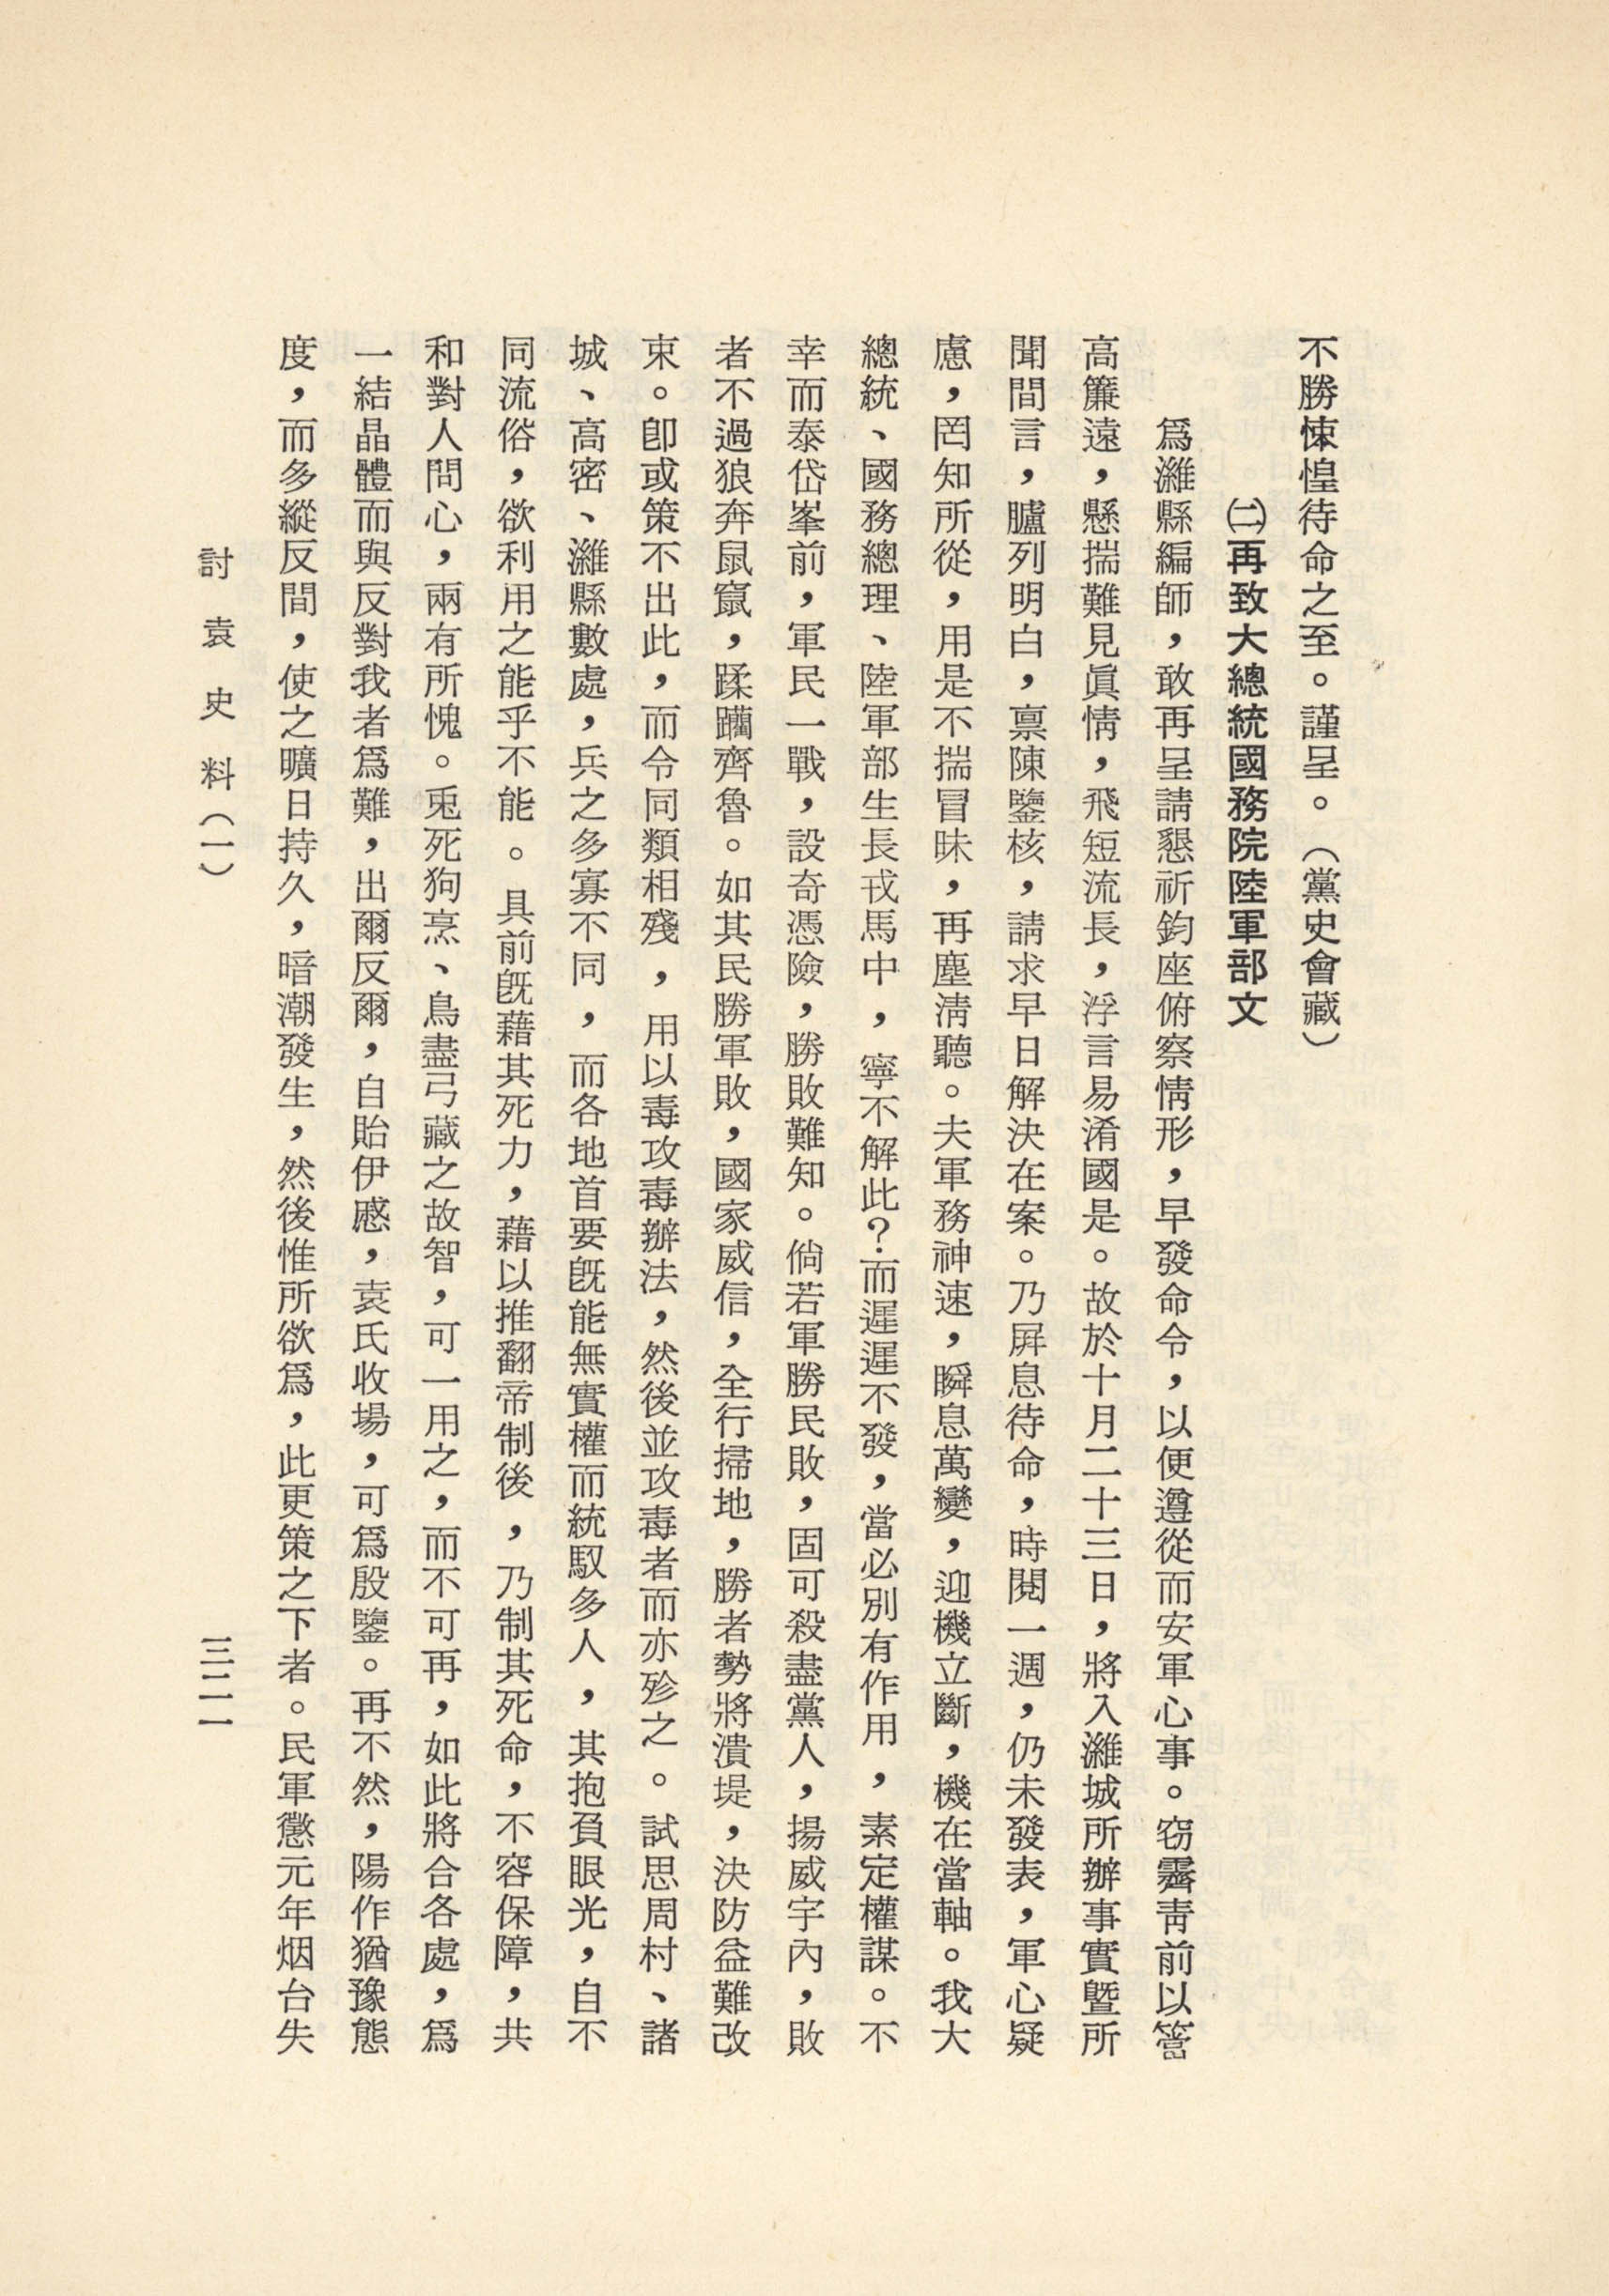 不勝悚惶待命之至。謹呈。（黨史會藏）
㈡再致大總統國務院陸軍部文
爲濰縣編師，敢再呈請懇祈鈞座俯察情形，早發命令，以便遵從而安軍心事。窃霽青前以簷
高簾遠，懸揣難見眞情，飛短流長，浮言易淆國是。故於十月二十三日，將入濰城所辦事實曁所
聞間言，臚列明白，禀陳鑒核，請求早日解決在案。乃屛息待命，時閱一週，仍未發表，軍心疑
慮，罔知所從，用是不揣冒昧，再塵淸聽。夫軍務神速，瞬息萬變，迎機立斷，機在當軸。我大
總統、國務總理、陸軍部生長戎馬中，寧不解此？而遲遲不發，當必別有作用，素定權謀。不
幸而泰岱峯前，軍民一戰，設奇憑險，勝敗難知。倘若軍勝民敗，固可殺盡黨人，揚威宇內，敗
者不過狼奔鼠竄，蹂躪齊魯。如其民勝軍敗，國家威信，全行掃地，勝者勢將潰堤，決防益難改
束。卽或策不出此，而令同類相殘，用以毒攻毒辦法，然後並攻毒者而亦殄之。試思周村、諸
城、高密、濰縣數處，兵之多寡不同，而各地首要旣能無實權而統馭多人，其抱負眼光，自不
同流俗，欲利用之能乎不能。具前旣藉其死力，藉以推翻帝制後，乃制其死命，不容保障，共
和對人問心，兩有所愧。兎死狗烹、鳥盡弓藏之故智，可一用之，而不可再，如此將合各處，爲
一結晶體而與反對我者爲難，出爾反爾，自貽伊慼，袁氏收場，可爲殷鑒。再不然，陽作猶豫態
度，而多縱反間，使之曠日持久，暗潮發生，然後惟所欲爲，此更策之下者。民軍懲元年烟台失
討袁史料（一）
三二一